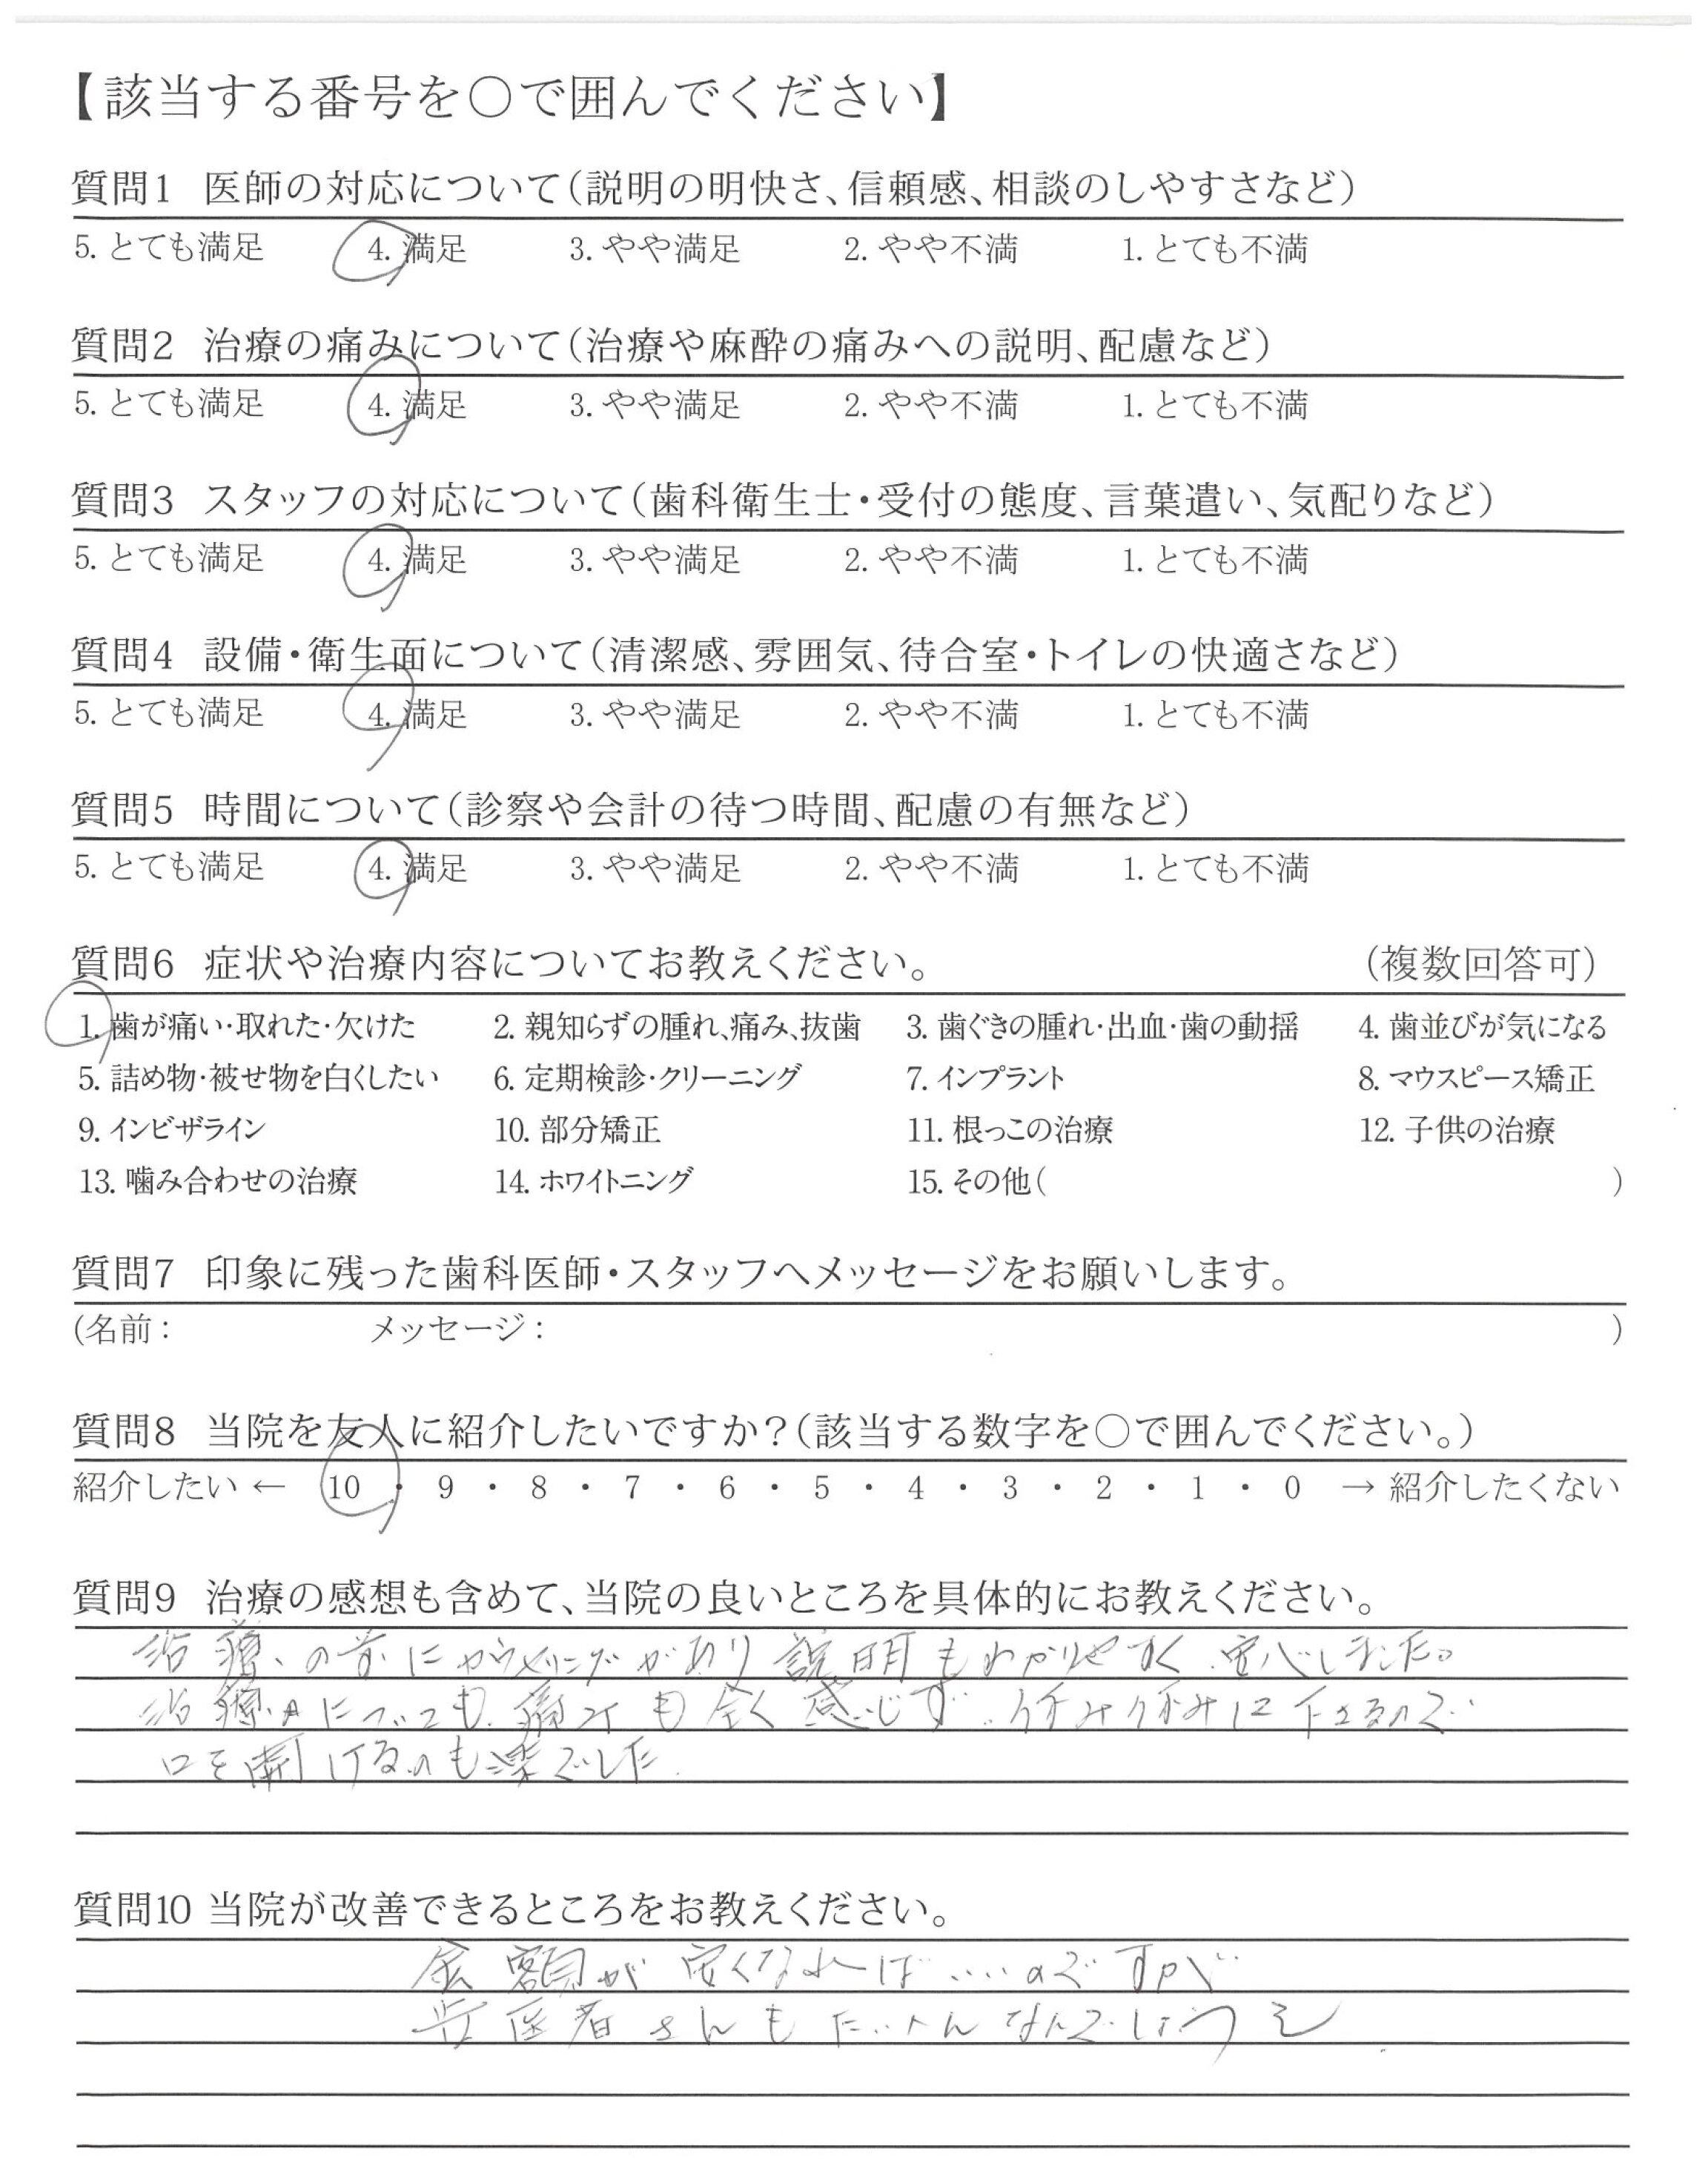 【該当する番号を○で囲んでください】
質問1 医師の対応について(説明の明快さ、信頼感、相談のしやすさなど)
5. とても満足 4. 満足 3. やや満足 2. やや不満 1. とても不満
質問2 治療の痛みについて(治療や麻酔の痛みへの説明、配慮など)
5. とても満足 4. 満足 3. やや満足 2. やや不満 1. とても不満
質問3 スタッフの対応について(歯科衛生士・受付の態度、言葉遣い、気配りなど)
5. とても満足 4. 満足 3. やや満足 2. やや不満 1. とても不満
質問4 設備・衛生面について(清潔感、雰囲気、待合室・トイレの快適さなど)
5. とても満足 4. 満足 3. やや満足 2. やや不満 1. とても不満
質問5 時間について(診察や会計の待つ時間、配慮の有無など)
5. とても満足 4. 満足 3. やや満足 2. やや不満 1. とても不満
質問6 症状や治療内容についてお教えください。 (複数回答可)
1. 歯が痛い・取れた・欠けた 2. 親知らずの腫れ、痛み、抜歯 3. 歯ぐきの腫れ・出血・歯の動揺 4. 歯並びが気になる
5. 詰め物・被せ物を白くしたい 6. 定期検診・クリーニング 7. インプラント 8. マウスピース矯正
9. インビザライン 10. 部分矯正 11. 根っこの治療 12. 子供の治療
13. 噛み合わせの治療 14. ホワイトニング 15. その他( )
質問7 印象に残った歯科医師・スタッフへメッセージをお願いします。
(名前: メッセージ: )
質問8 当院を友人に紹介したいですか?(該当する数字を○で囲んでください。)
紹介したい ← 10 ・ 9 ・ 8 ・ 7 ・ 6 ・ 5 ・ 4 ・ 3 ・ 2 ・ 1 ・ 0 → 紹介したくない
質問9 治療の感想も含めて、当院の良いところを具体的にお教えください。
治療の前にカウンセリングがあり説明もわかりやすく安心しました。
治療についても痛みも全く感じず休み休みに下さるので
口を開けるのも楽でした
質問10 当院が改善できるところをお教えください。
金額が安くなれば……のですが
歯医者さんもたいへんなんでしょうネ